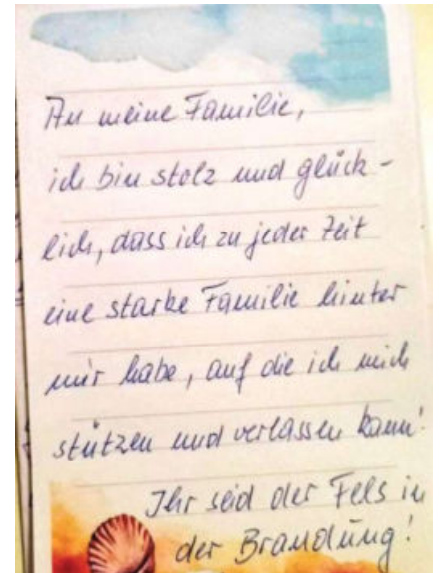 An meine Familie,
ich bin stolz und glück-
lich, dass ich zu jeder Zeit
eine starke Familie hinter
mir habe, auf die ich mich
stützen und verlassen kann!
Ihr seid der Fels in
der Brandung!